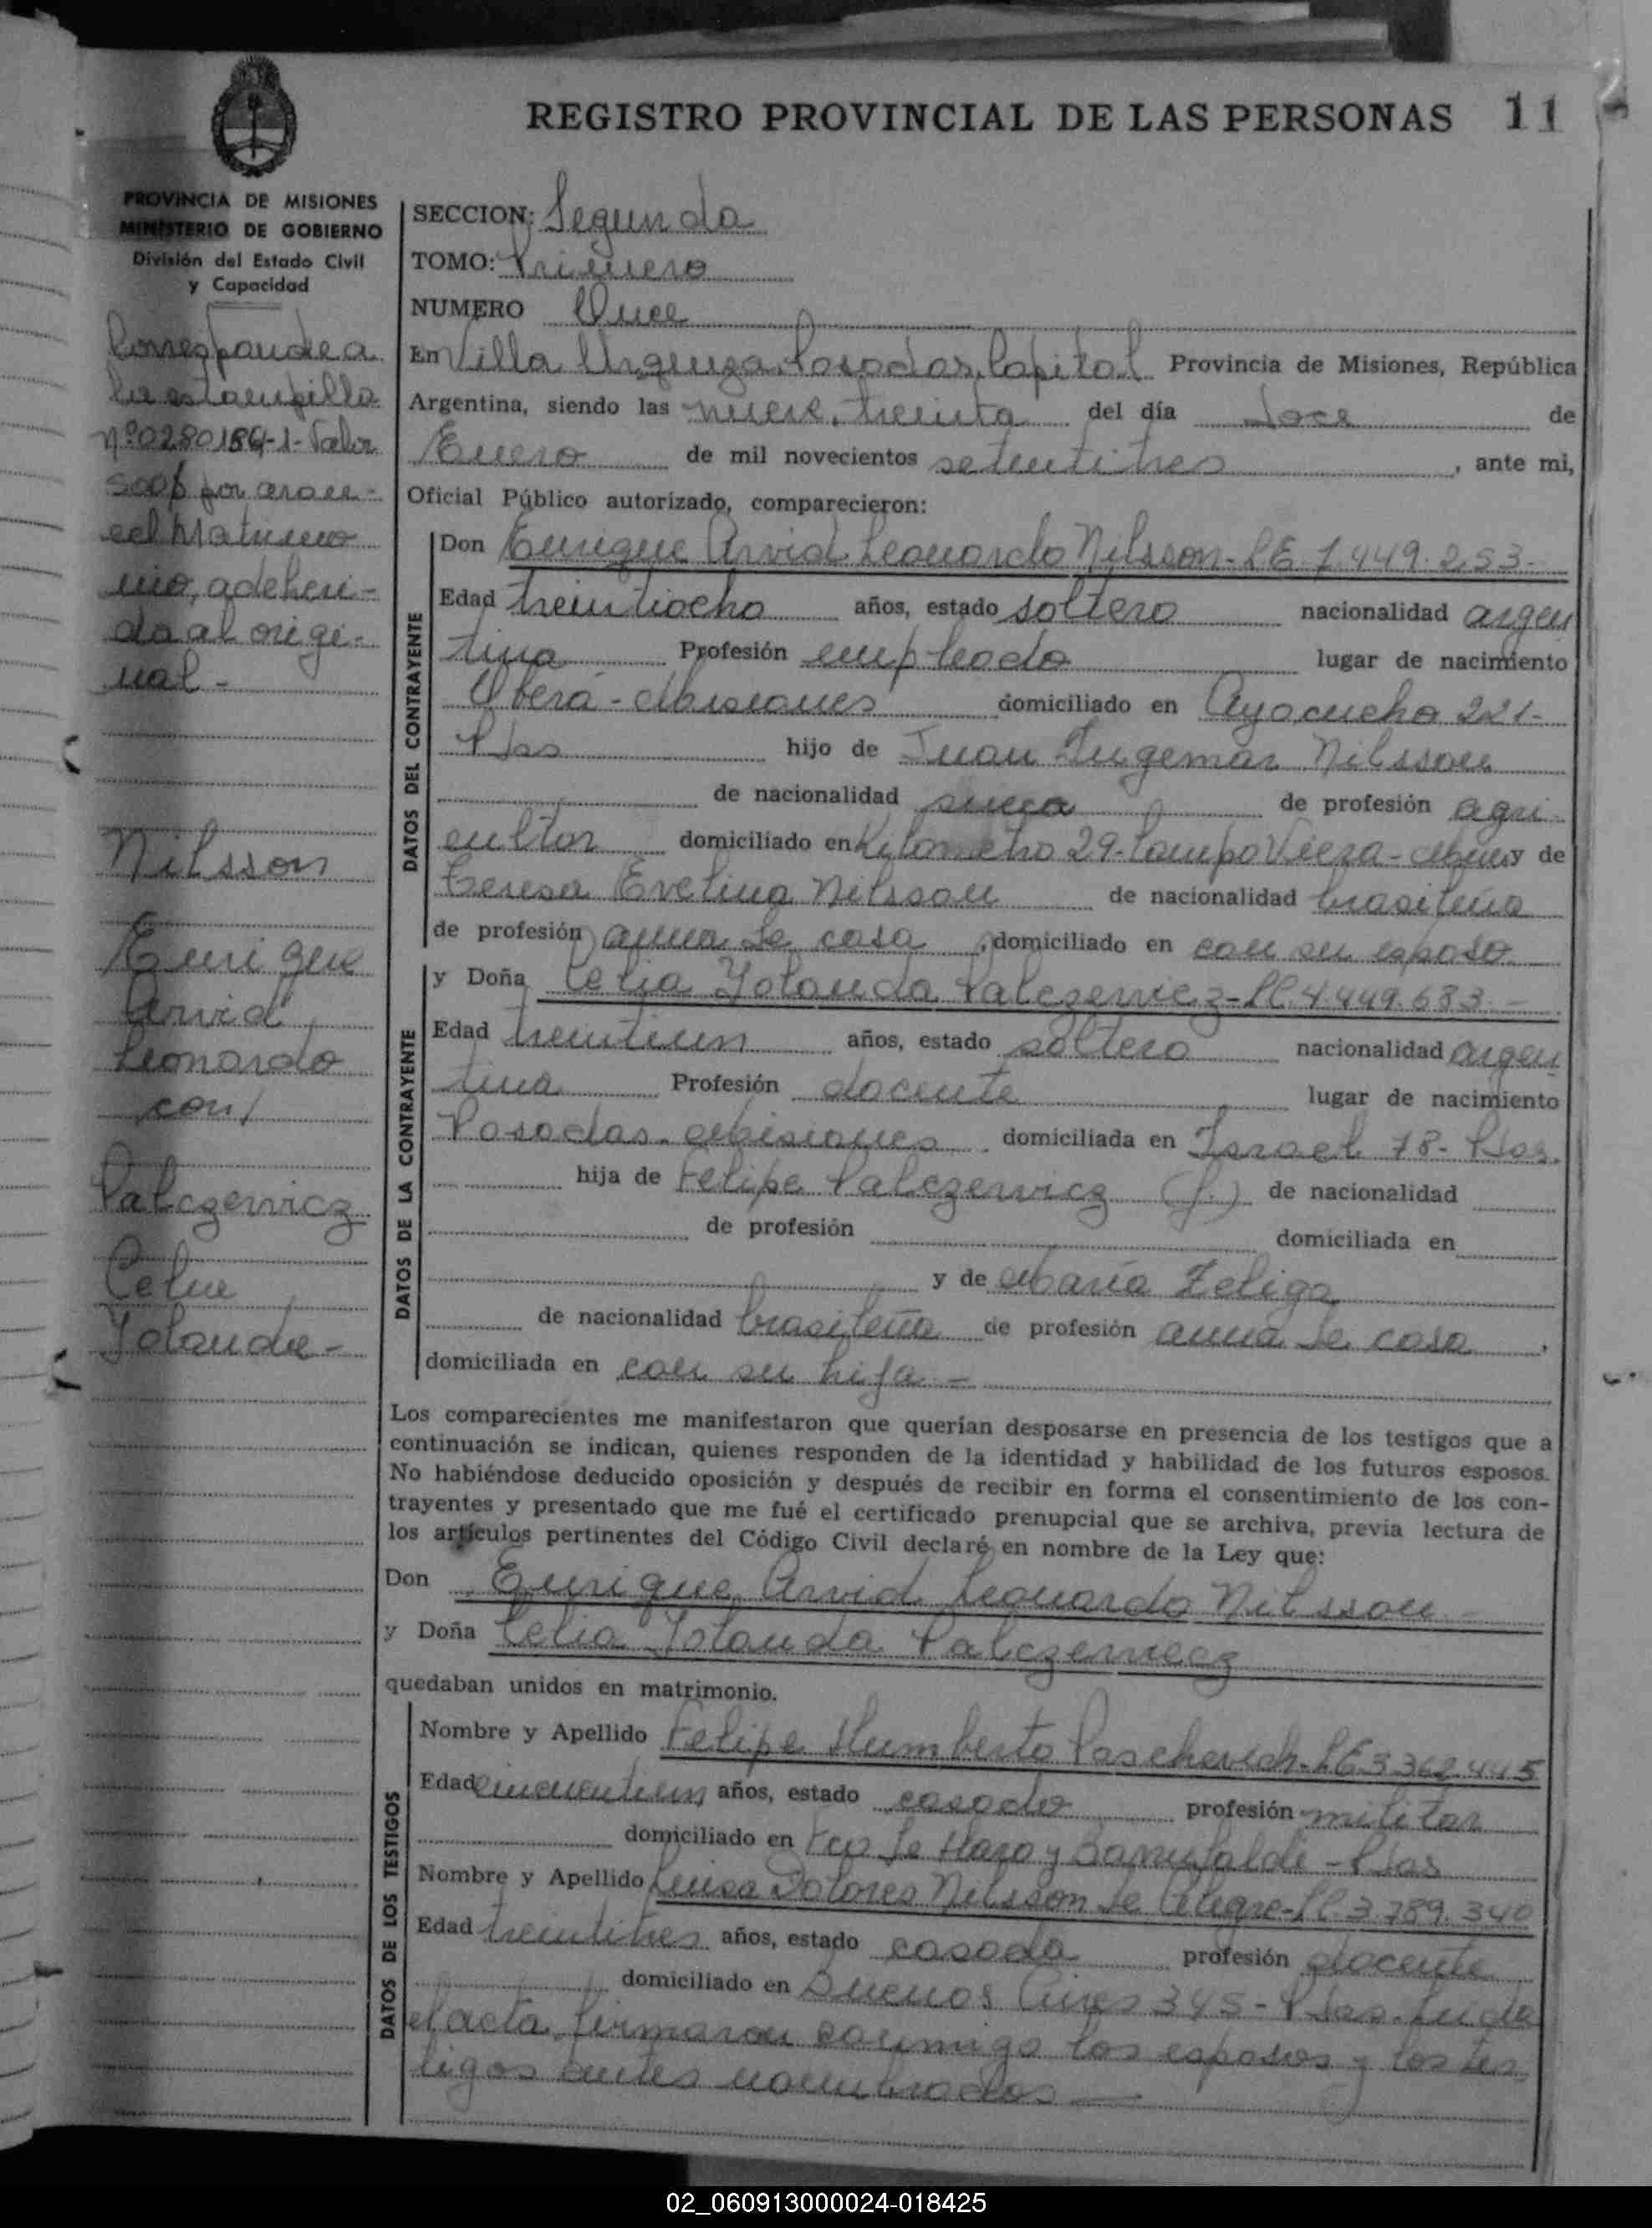 REGISTRO PROVINCIAL DE LAS PERSONAS 11
PROVINCIA DE MISIONES
MINISTERIO DE GOBIERNO
División del Estado Civil
y Capacidad
Corresponde a
la estampilla
nº 0280184-1- Valor
500$ por aran-
cel Matrimo
nio, adheri-
da al origi-
nal -
Nilsson
Enrique
Arvid
Leonardo
con/
Palczewicz
Celia
Yolanda -
SECCION: Segunda
TOMO: Primero
NUMERO Once
En Villa Urquiza, Posadas, Capital Provincia de Misiones, República
Argentina, siendo las nueve, treinta del día doce de
Enero de mil novecientos setentitres, ante mi,
Oficial Público autorizado, comparecieron:
DATOS DEL CONTRAYENTE
Don Enrique Arvid Leonardo Nilsson - L.E. 7.449.253 -
Edad treintiocho años, estado soltero nacionalidad argen
tina Profesión empleado lugar de nacimiento
Oberá - Misiones domiciliado en Ayacucho 221 -
Pdas hijo de Juan Ingemar Nilsson
de nacionalidad sueca de profesión agri
cultor domiciliado en Kilometro 29 - Campo Viera - Mnes y de
Teresa Evelina Nilsson de nacionalidad brasileña
de profesión ama de casa, domiciliado en con su esposo
DATOS DE LA CONTRAYENTE
y Doña Celia Yolanda Palczewicz - L.C. 4.449.683 -
Edad treintiun años, estado soltera nacionalidad argen
tina Profesión docente lugar de nacimiento
Posadas - Misiones domiciliada en Israel 78 - Pdas.
hija de Felipe Palczewicz (f.) de nacionalidad
de profesión domiciliada en
y de María Zeliga
de nacionalidad brasileña de profesión ama de casa,
domiciliada en con su hija -
Los comparecientes me manifestaron que querían desposarse en presencia de los testigos que a
continuación se indican, quienes responden de la identidad y habilidad de los futuros esposos.
No habiéndose deducido oposición y después de recibir en forma el consentimiento de los con-
trayentes y presentado que me fué el certificado prenupcial que se archiva, previa lectura de
los artículos pertinentes del Código Civil declaré en nombre de la Ley que:
Don Enrique Arvid Leonardo Nilsson -
y Doña Celia Yolanda Palczewicz
quedaban unidos en matrimonio.
DATOS DE LOS TESTIGOS
Nombre y Apellido Felipe Humberto Paschevich - L.E 3.362.445
Edad cincuentiun años, estado casado profesión militar
domiciliado en Fco de Haro y - Pdas
Nombre y Apellido Luisa Dolores Nilsson de Alegre - L.C. 3.789.340
Edad treintitres años, estado casada profesión docente
domiciliado en Buenos Aires 345 - Pdas. Leida
el acta, firmaron conmigo los esposos y los tes
tigos antes nombrados -
02_060913000024-018425